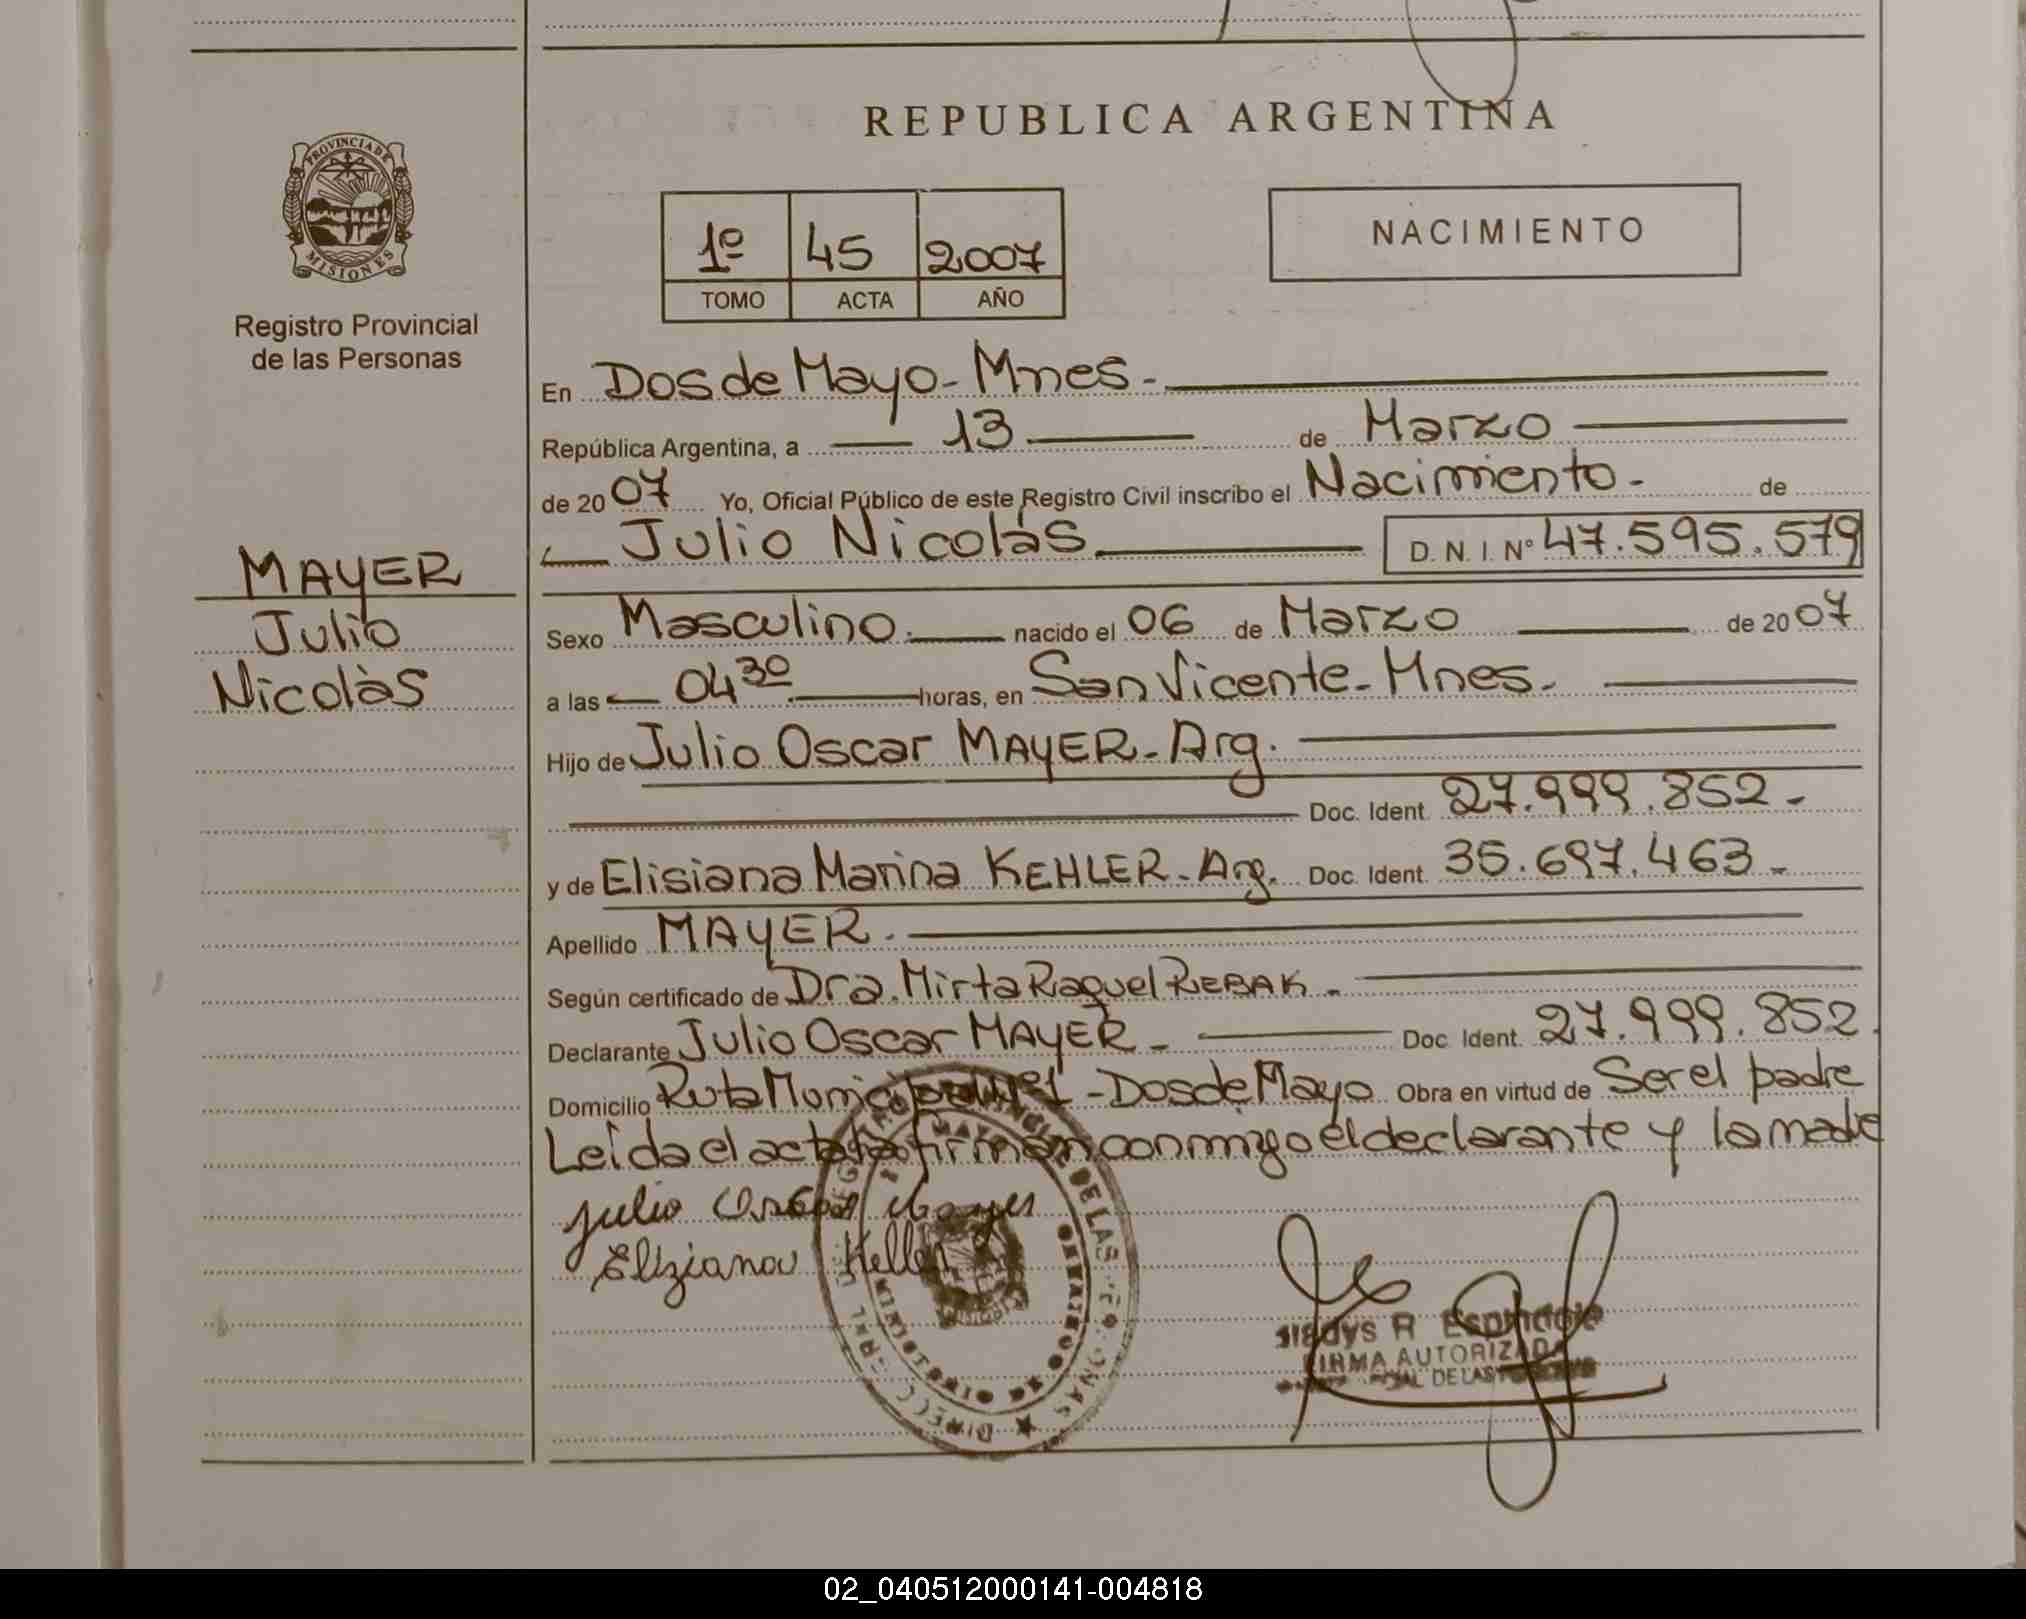 REPUBLICA ARGENTINA
PROVINCIA DE
MISIONES
Registro Provincial
de las Personas
1º 45 2007
TOMO ACTA AÑO
NACIMIENTO
MAYER
Julio
Nicolàs
En Dos de Mayo - Mnes -
República Argentina, a 13 de Marzo
de 2007 Yo, Oficial Público de este Registro Civil inscribo el Nacimiento - de
Julio Nicolás D. N. I. Nº 47.595.579
Sexo Masculino. nacido el 06 de Marzo de 2007
a las 04 30 horas, en San Vicente - Mnes.
Hijo de Julio Oscar MAYER - Arg.
Doc. Ident. 27.999.852 -
y de Elisiana Marina KEHLER - Arg. Doc. Ident. 35.697.463 -
Apellido MAYER.
Según certificado de Dra. Mirta Raquel REBAK -
Declarante Julio Oscar MAYER - Doc. Ident. 27.999.852.
Domicilio Ruta Municipal Nº1 - Dos de Mayo Obra en virtud de Ser el padre
Leída el acta la firman conmigo el declarante y la madre
Julio Mayer
Eliziana
DE LAS
FIRMA AUTORIZADA
DE LAS
02_040512000141-004818